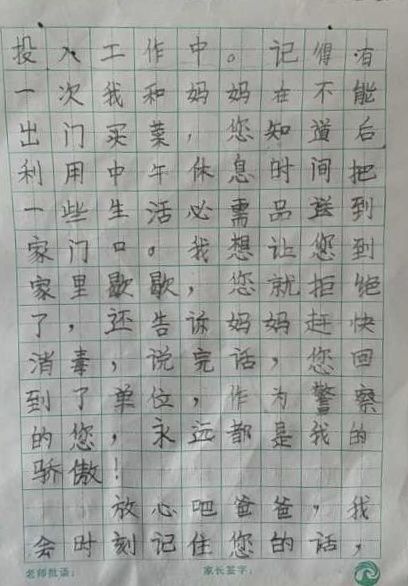 投入工作中。记得有
一次我和妈妈在不能
出门买菜，您知道后
利用中午休息时间把
一些生活必需品送到
家门口。我想让您到
家里歇歇，您就拒绝
了，还告诉妈妈赶快
消毒，说完话，您回
到了单位，作为警察
的您，永远都是我的
骄傲！
放心吧爸爸，我
会时刻记住您的话，
老师批语： 家长签字：